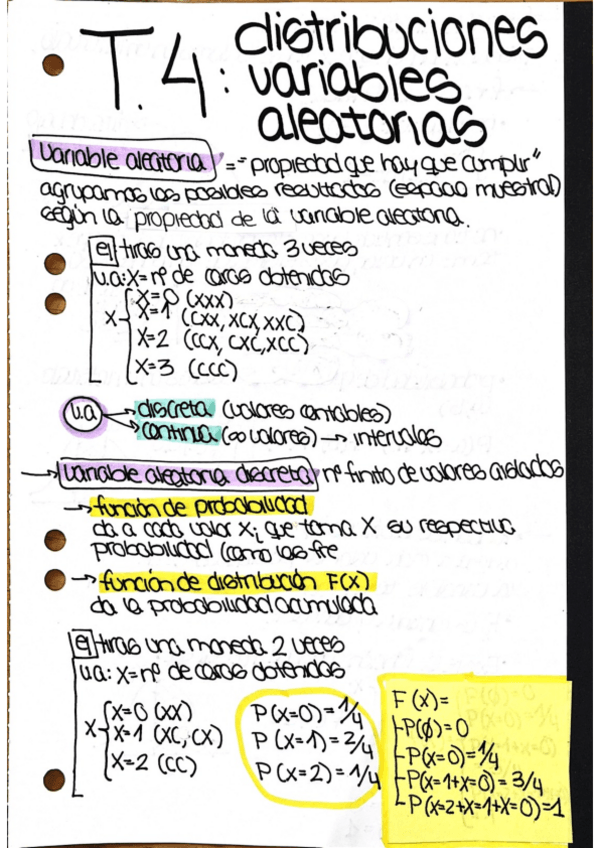 T.4: distribuciones
variables
aleatorias
Variable aleatoria = "propiedad que hay que cumplir"
agrupamos los posibles resultados (espacio muestral)
según la propiedad de la variable aleatoria.
ej tiras una moneda 3 veces
v.a: X=nº de caras obtenidas
X
X=0 (XXX)
X=1 (CXX, XCX, XXC)
X=2 (CCX, CXC, XCC)
X=3 (CCC)
v.a → discreta (valores contables)
→ continua (∞ valores) → intervalos
→ Variable aleatoria discreta nº finito de valores aislados
→ función de probabilidad
da a cada valor Xi que toma X su respectiva
probabilidad (como las fre
→ función de distribución F(x)
da la probabilidad acumulada
ej tiras una moneda 2 veces
v.a: X=nº de caras obtenidas
X
X=0 (XX)
X=1 (XC, CX)
X=2 (CC)
P(X=0)=1/4
P(X=1)=2/4
P(X=2)=1/4
F(x)=
P(∅)=0
P(X=0)=1/4
P(X=1+X=0)=3/4
P(X=2+X=1+X=0)=1